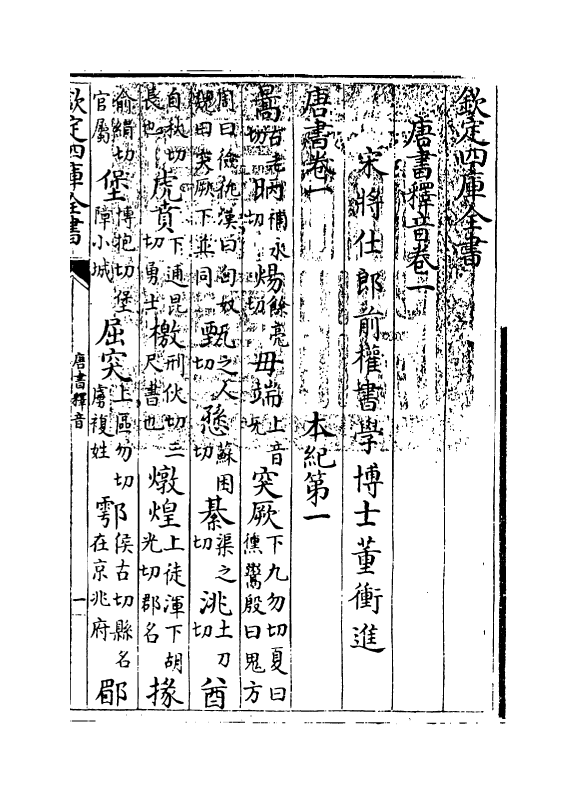 欽定四庫全書
唐書釋音卷一
宋將仕郎前權書學博士董衝進
唐書卷一 本紀第一
暠古老切昞補永切煬餘亮切毋端上音无突厥下九勿切夏曰獯鬻殷曰鬼方
周曰獫狁漢曰匈奴魏曰突厥下並同甄之人切愻蘇困切綦渠之切洮土刀切酋
自秋切長也虎賁下通昆切勇士檄刑狄切三尺書也燉煌上徒渾下胡光切郡名掾
俞絹切官屬堡博抱切堡障小城屈突上區勿切虜複姓鄠侯古切縣名在京兆府郿
欽定四庫全書 唐書釋音 一